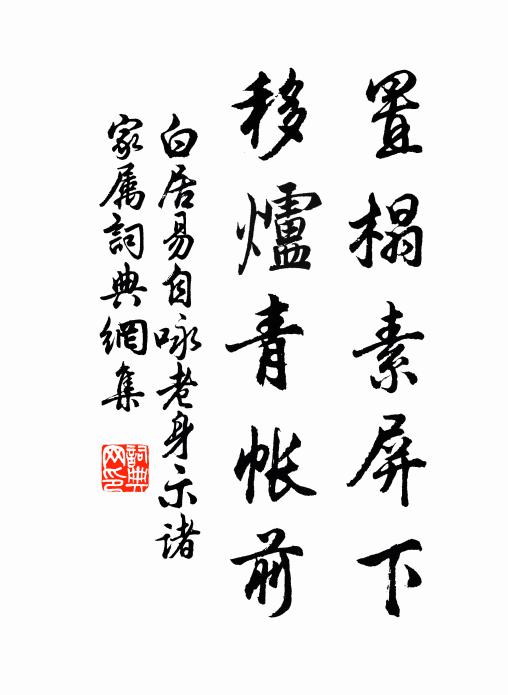 置榻素屏下
移爐青帳前
白居易自咏老身示諸
家属詞典網集
詞典网印